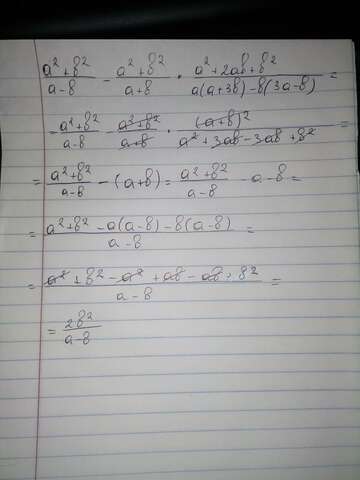 (a² + b²)/(a - b) - (a² + b²)/(a + b) · (a² + 2ab + b²)/(a(a + 3b) - b(3a - b)) =
- (a² + b²)/(a - b) - (a² + b²)/(a + b) · (a + b)²/(a² + 3ab - 3ab + b²) =
= (a² + b²)/(a - b) - (a + b) = (a² + b²)/(a - b) - a - b =
= (a² + b² - a(a - b) - b(a - b))/(a - b) =
= (a² + b² - a² + ab - ab + b²)/(a - b) =
= 2b²/(a - b)